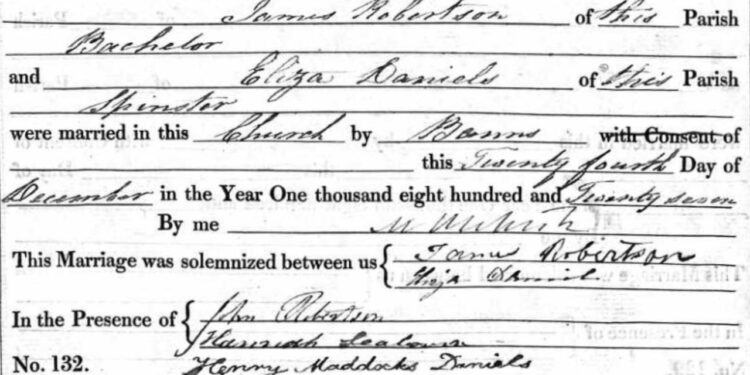 James Robertson of this Parish
Bachelor
and Eliza Daniels of this Parish
Spinster
were married in this Church by Banns with Consent of
this Twenty fourth Day of
December in the Year One thousand eight hundred and Twenty seven
By me
This Marriage was solemnized between us { James Robertson
Eliza Daniel
In the Presence of { John Robertson
Hannah
No. 132. Henry Maddocks Daniels